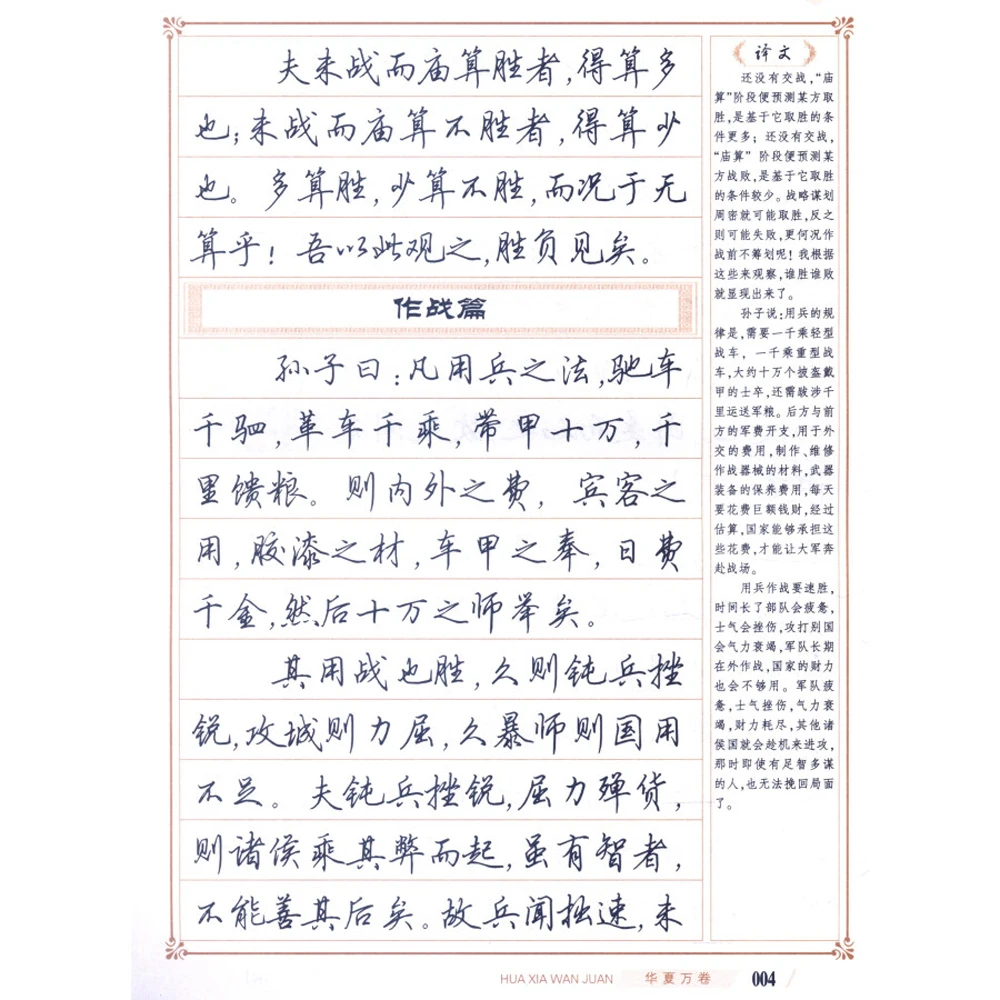 夫未战而庙算胜者,得算多
也;未战而庙算不胜者,得算少
也。多算胜,少算不胜,而况于无
算乎!吾以此观之,胜负见矣。
作战篇
孙子曰:凡用兵之法,驰车
千驷,革车千乘,带甲十万,千
里馈粮。则内外之费,宾客之
用,胶漆之材,车甲之奉,日费
千金,然后十万之师举矣。
其用战也胜,久则钝兵挫
锐,攻城则力屈,久暴师则国用
不足。夫钝兵挫锐,屈力殚货,
则诸侯乘其弊而起,虽有智者,
不能善其后矣。故兵闻拙速,未
译文
还没有交战,“庙
算”阶段便预测某方取
胜,是基于它取胜的条
件更多;还没有交战,
“庙算”阶段便预测某
方战败,是基于它取胜
的条件较少。战略谋划
周密就可能取胜,反之
则可能失败,更何况作
战前不筹划呢!我根据
这些来观察,谁胜谁败
就显现出来了。
孙子说:用兵的规
律是,需要一千乘轻型
战车,一千乘重型战
车,大约十万个披盔戴
甲的士卒,还需跋涉千
里运送军粮。后方与前
方的军费开支,用于外
交的费用,制作、维修
作战器械的材料,武器
装备的保养费用,每天
要花费巨额钱财,经过
估算,国家能够承担这
些花费,才能让大军奔
赴战场。
用兵作战要速胜,
时间长了部队会疲惫,
士气会挫伤,攻打别国
会气力衰竭,军队长期
在外作战,国家的财力
也会不够用。军队疲
惫,士气挫伤,气力衰
竭,财力耗尽,其他诸
侯国就会趁机来进攻,
那时即使有足智多谋
的人,也无法挽回局面
了。
HUA XIA WAN JUAN 华夏万卷 004